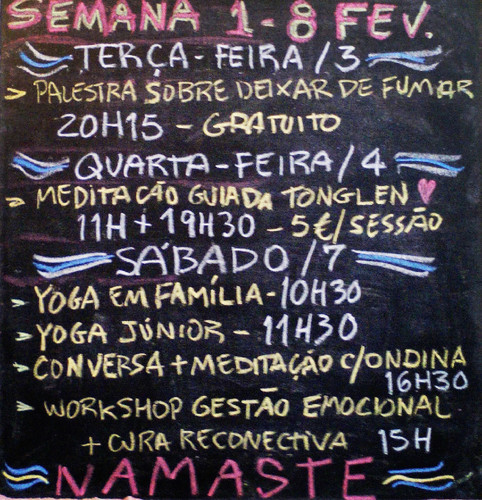 SEMANA 1-8 FEV.
TERÇA-FEIRA/3
> PALESTRA SOBRE DEIXAR DE FUMAR
20H15 - GRATUITO
QUARTA-FEIRA/4
> MEDITAÇÃO GUIADA TONGLEN ♥
11H + 19H30 - 5€/SESSÃO
SÁBADO/7
> YOGA EM FAMÍLIA - 10H30
> YOGA JÚNIOR - 11H30
> CONVERSA + MEDITAÇÃO C/ONDINA
16H30
> WORKSHOP GESTÃO EMOCIONAL
+ CURA RECONECTIVA 15H
NAMASTE